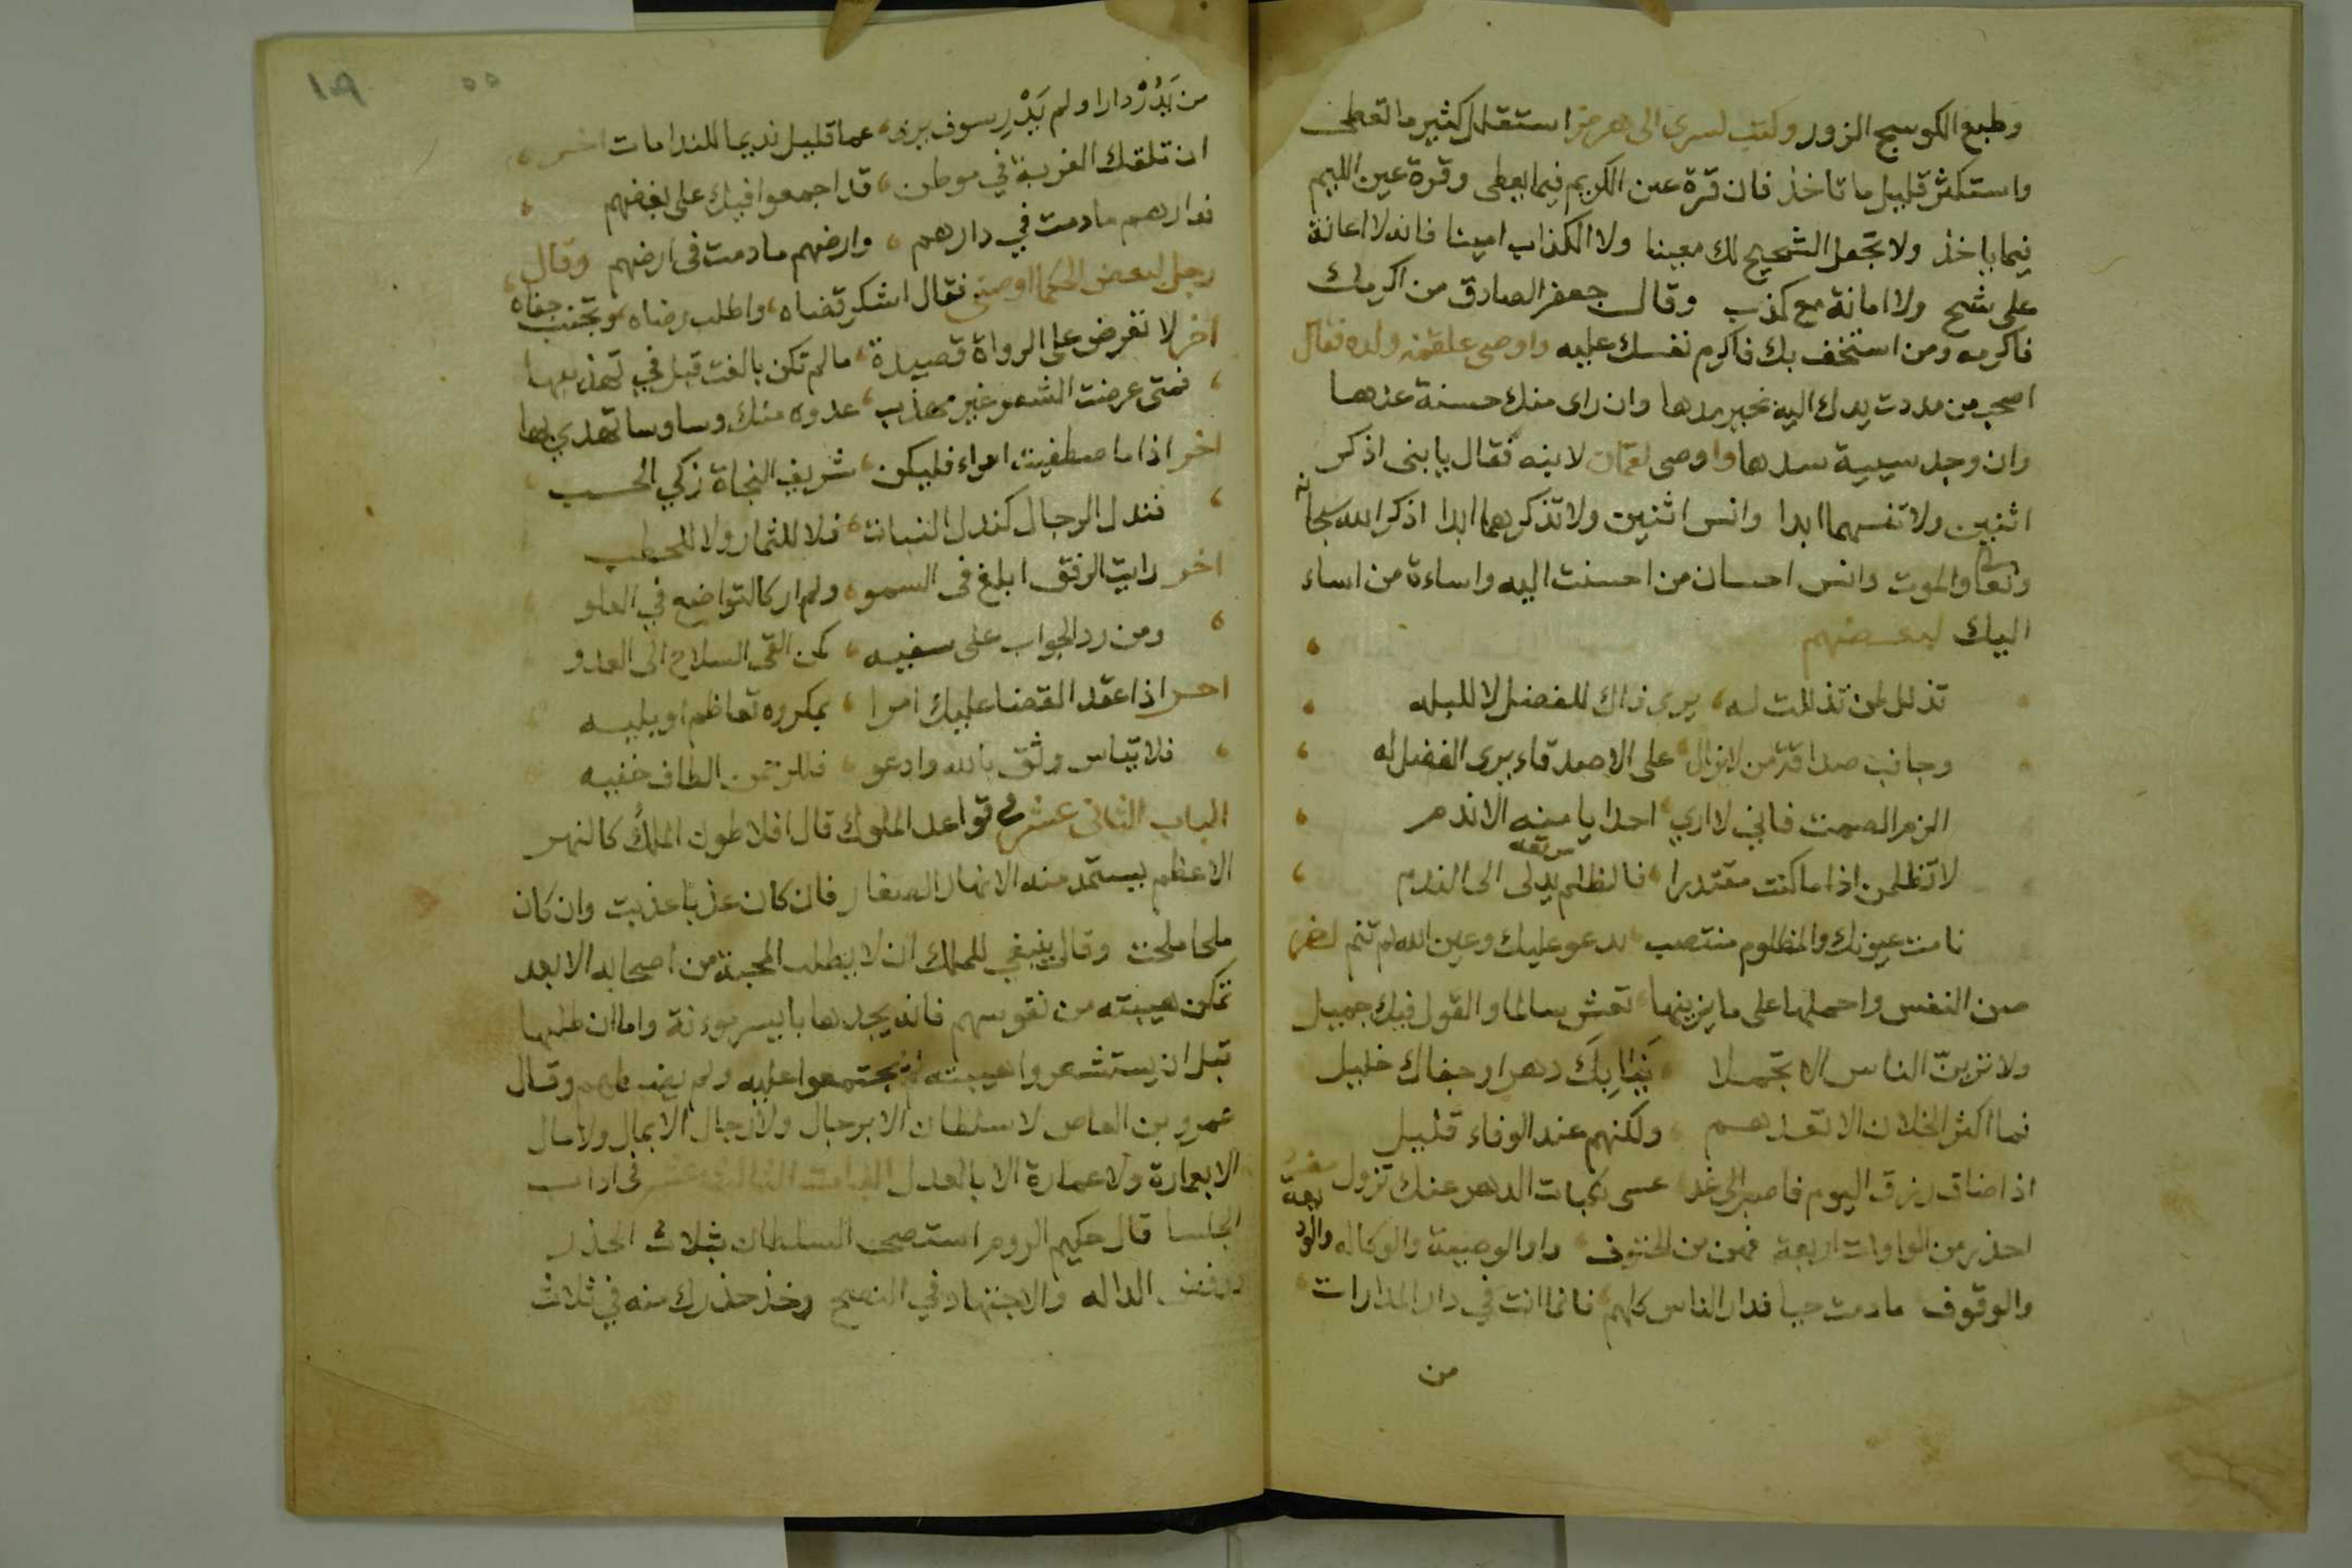 وطبع الكوسج الزور وكتب كسرى الى هرمز استقلل كثير ما تعطى
واستكثر قليل ما تاخذ فان قرة عين الكريم فيما يعطى وقرة عين الليم
فيما ياخذ ولا تجعل الشحيح لك معينا ولا الكذاب امينا فانه لا اعانة
على شح ولا امانة مع كذب وقال جعفر الصادق من اكرمك
فاكرمه ومن استخف بك فاكرم نفسك عليه واوصى علقمة ولده فقال
اصحب من مددت يدك اليه بخير مدها وان راى منك حسنة عدها
وان وجد سيية سدها واوصى لقمان لابنه فقال يا بنى اذكر
اثنين ولا تنسهما ابدا وانس اثنين ولا تذكرهما ابدا اذكر الله سبحانه
وتعالى والموت وانس احسان من احسنت اليه واساءة من اساء
اليك لبعضهم
تذلل لمن تذللت له يرى ذاك للفضل لا للبله
وجانب صداقة من لا يزال على الاصدقاء يرى الفضل له
الزم الصمت فاني لا اري احدا يا منيه الا ندم
لا تظلمن اذا ما كنت مقتدرا فالظلم يدلى الى الندم
مرتعه
نامت عيونك والمظلوم منتصب يدعو عليك وعين الله لم تنم
صن النفس واحملها على ما يزينها تعش سالما والقول فيك جميل
ولا ترين الناس الا تجملا نبا بك دهر او جفاك خليل
فما اكثر الخلان لا تعدهم ولكنهم عند الوفاء قليل
اذا ضاق رزق اليوم فاصبر الى غد عسى نكبات الدهر عنك تزول
احذر من الواوات اربعة فهن من الحتوف واو الوصية والوكاله والوديعة
والوقوف ما دمت حيا فدار الناس كلهم فانما انت في دار المدارات
من
١٩ ٥٥
من يَدْرِ دارا ولم يَدْرِ سوف يرى عما قليل نديما للندامات اخر
ان تلقك الغربة في موطن قد اجمعوا فيك على بغضهم
فدارهم ما دمت في دارهم وارضهم ما دمت فى ارضهم وقال
رجل لبعض الحكما اوصنى فقال اشكر قضاه واطلب رضاه وتجنب جفاه
اخر لا تعرض على الرواة قصيدة ما لم تكن بالغت قبل في تهذيبها
فمتى عرضت الشعر غير مهذب عدوه منك وساوسا تهدي بها
اخر اذا ما صطفيت امراء فليكن شريف النجاة زكي الحسب
فندل الرجال كندل النبات فلا للثمار ولا للحطب
اخر رايت الرفق ابلغ فى السمو ولم ار كالتواضع في العلو
ومن رد الجواب على سفيه كمن القى السلاح الى العدو
اخر اذا عقد القضا عليك امرا بمكروه تعاظم او يليه
فلا تياس وثق بالله وادعو فللرحمن الطاف خفيه
الباب الثانى عشر في قواعد الملوك قال افلاطون الملك كالنهر
الاعظم يستمد منه الانهار الصغار فان كان عذبا عذبت وان كان
ملحا ملحت وقال ينبغي للملك ان لا يطلب المحبة من اصحابه الا بعد
تمكن هيبته من نفوسهم فانه يجدها بايسر موءنة واما ان طلبها
قبل ان يستشعروا هيبته لم يجتمعوا عليه ولم يضبطهم وقال
عمرو بن العاص لا سلطان الا برجال ولا رجال الا بمال ولا مال
الا بعمارة ولا عمارة الا بالعدل الباب الثالث عشر فى اداب
الجلسا قال حكيم الروم استصحب السلطان بثلاث الحذر
ورفض الداله والاجتهاد في النصح وخذ حذرك منه في ثلاث